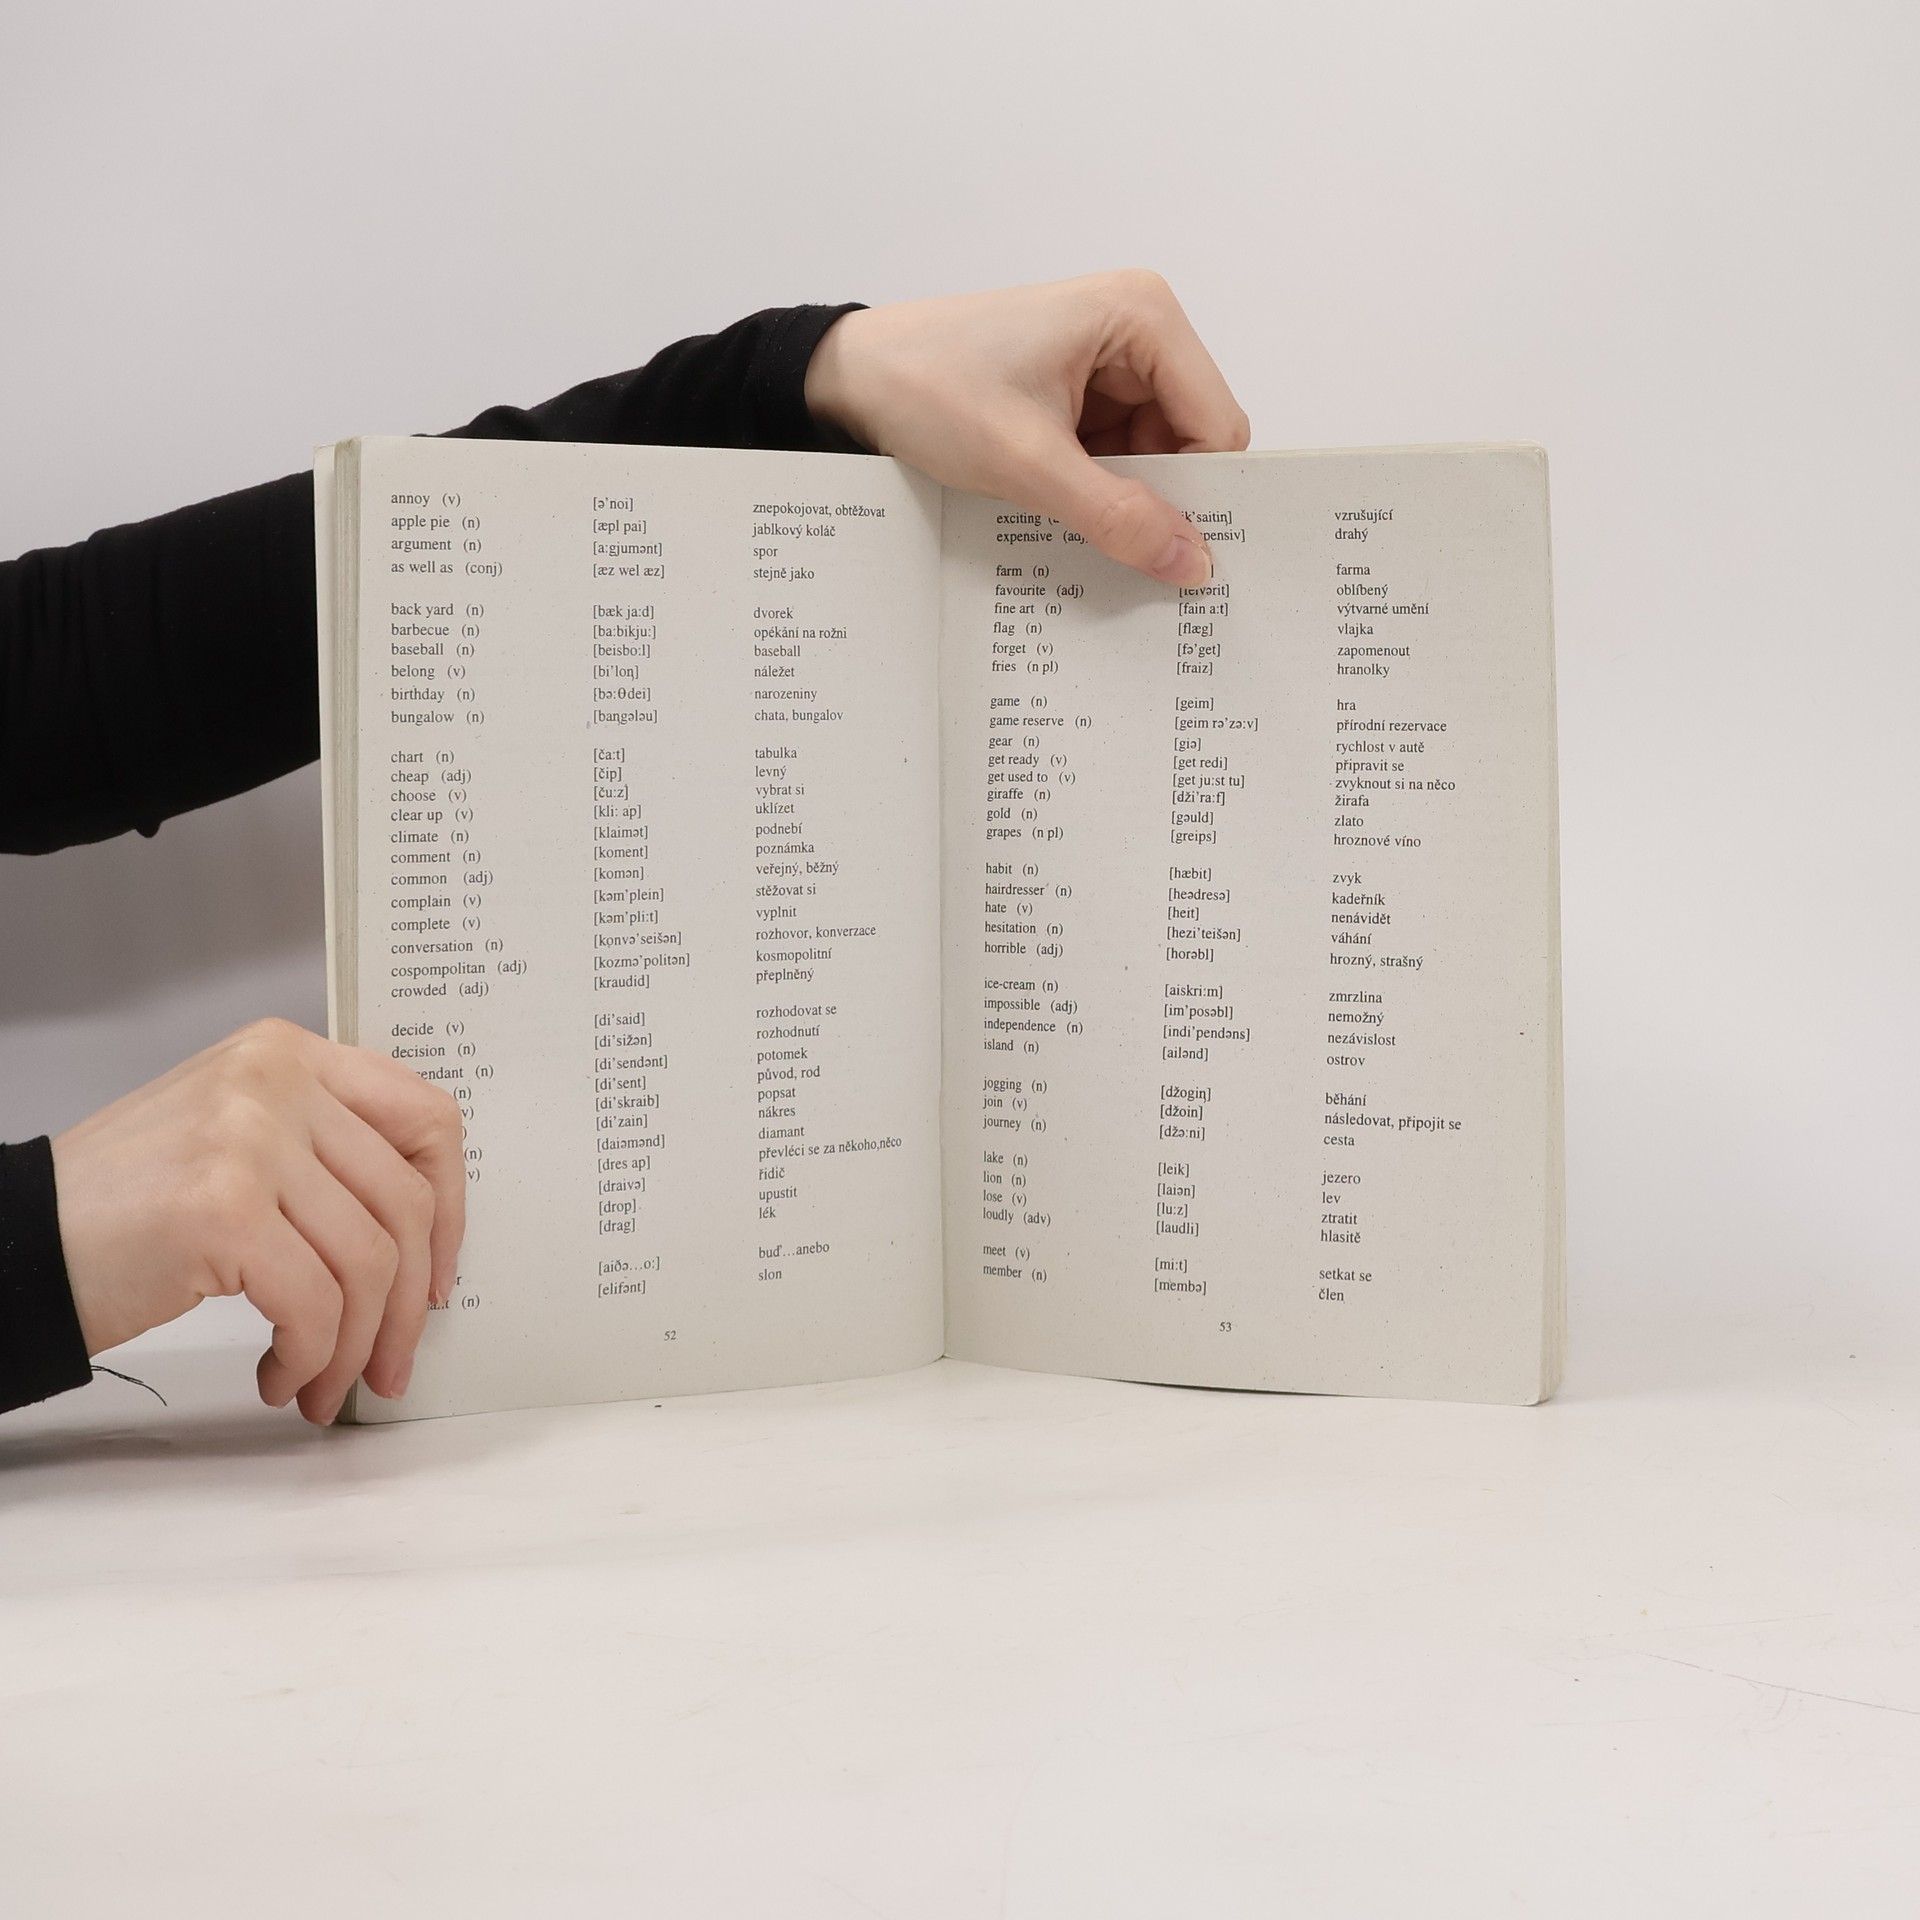 annoy (v) [ə'noi] znepokojovat, obtěžovat
apple pie (n) [æpl pai] jablkový koláč
argument (n) [a:gjumənt] spor
as well as (conj) [æz wel æz] stejně jako
back yard (n) [bæk ja:d] dvorek
barbecue (n) [ba:bikju:] opékání na rožni
baseball (n) [beisbo:l] baseball
belong (v) [bi'loŋ] náležet
birthday (n) [bə:θdei] narozeniny
bungalow (n) [baŋgələu] chata, bungalov
chart (n) [ča:t] tabulka
cheap (adj) [čip] levný
choose (v) [ču:z] vybrat si
clear up (v) [kli: ap] uklízet
climate (n) [klaimət] podnebí
comment (n) [koment] poznámka
common (adj) [komən] veřejný, běžný
complain (v) [kəm'plein] stěžovat si
complete (v) [kəm'pli:t] vyplnit
conversation (n) [konvə'seišən] rozhovor, konverzace
cospompolitan (adj) [kozmə'politən] kosmopolitní
crowded (adj) [kraudid] přeplněný
decide (v) [di'said] rozhodovat se
decision (n) [di'sižən] rozhodnutí
endant (n) [di'sendənt] potomek
(n) [di'sent] původ, rod
v) [di'skraib] popsat
) [di'zain] nákres
(n) [daiəmənd] diamant
v) [dres ap] převléci se za někoho,něco
[draivə] řidič
[drop] upustit
[drag] lék
r [aiðə...o:] buď...anebo
(n) [elifənt] slon
52
exciting ik'saitiŋ] vzrušující
expensive (adj pensiv] drahý
farm (n) ] farma
favourite (adj) [feivərit] oblíbený
fine art (n) [fain a:t] výtvarné umění
flag (n) [flæg] vlajka
forget (v) [fə'get] zapomenout
fries (n pl) [fraiz] hranolky
game (n) [geim] hra
game reserve (n) [geim rə'zə:v] přírodní rezervace
gear (n) [giə] rychlost v autě
get ready (v) [get redi] připravit se
get used to (v) [get ju:st tu] zvyknout si na něco
giraffe (n) [dži'ra:f] žirafa
gold (n) [gəuld] zlato
grapes (n pl) [greips] hroznové víno
habit (n) [hæbit] zvyk
hairdresser (n) [heədresə] kadeřník
hate (v) [heit] nenávidět
hesitation (n) [hezi'teišən] váhání
horrible (adj) [horəbl] hrozný, strašný
ice-cream (n) [aiskri:m] zmrzlina
impossible (adj) [im'posəbl] nemožný
independence (n) [indi'pendəns] nezávislost
island (n) [ailənd] ostrov
jogging (n) [džogiŋ] běhání
join (v) [džoin] následovat, připojit se
journey (n) [džə:ni] cesta
lake (n) [leik] jezero
lion (n) [laiən] lev
lose (v) [lu:z] ztratit
loudly (adv) [laudli] hlasitě
meet (v) [mi:t] setkat se
member (n) [membə] člen
53